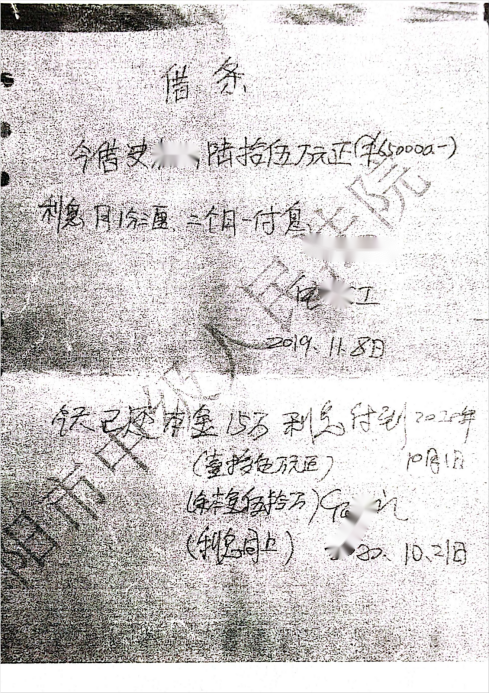 借条
今借史 陆拾伍万元正(¥650000-)
利息月1分 三个月一付息
江
2019.11.8日
今天已还本金15万利息付到2020年
(壹拾伍万元正) 10月1日
(余本金伍拾万)
(利息同上) 20.10.21日
阳市中级人民法院